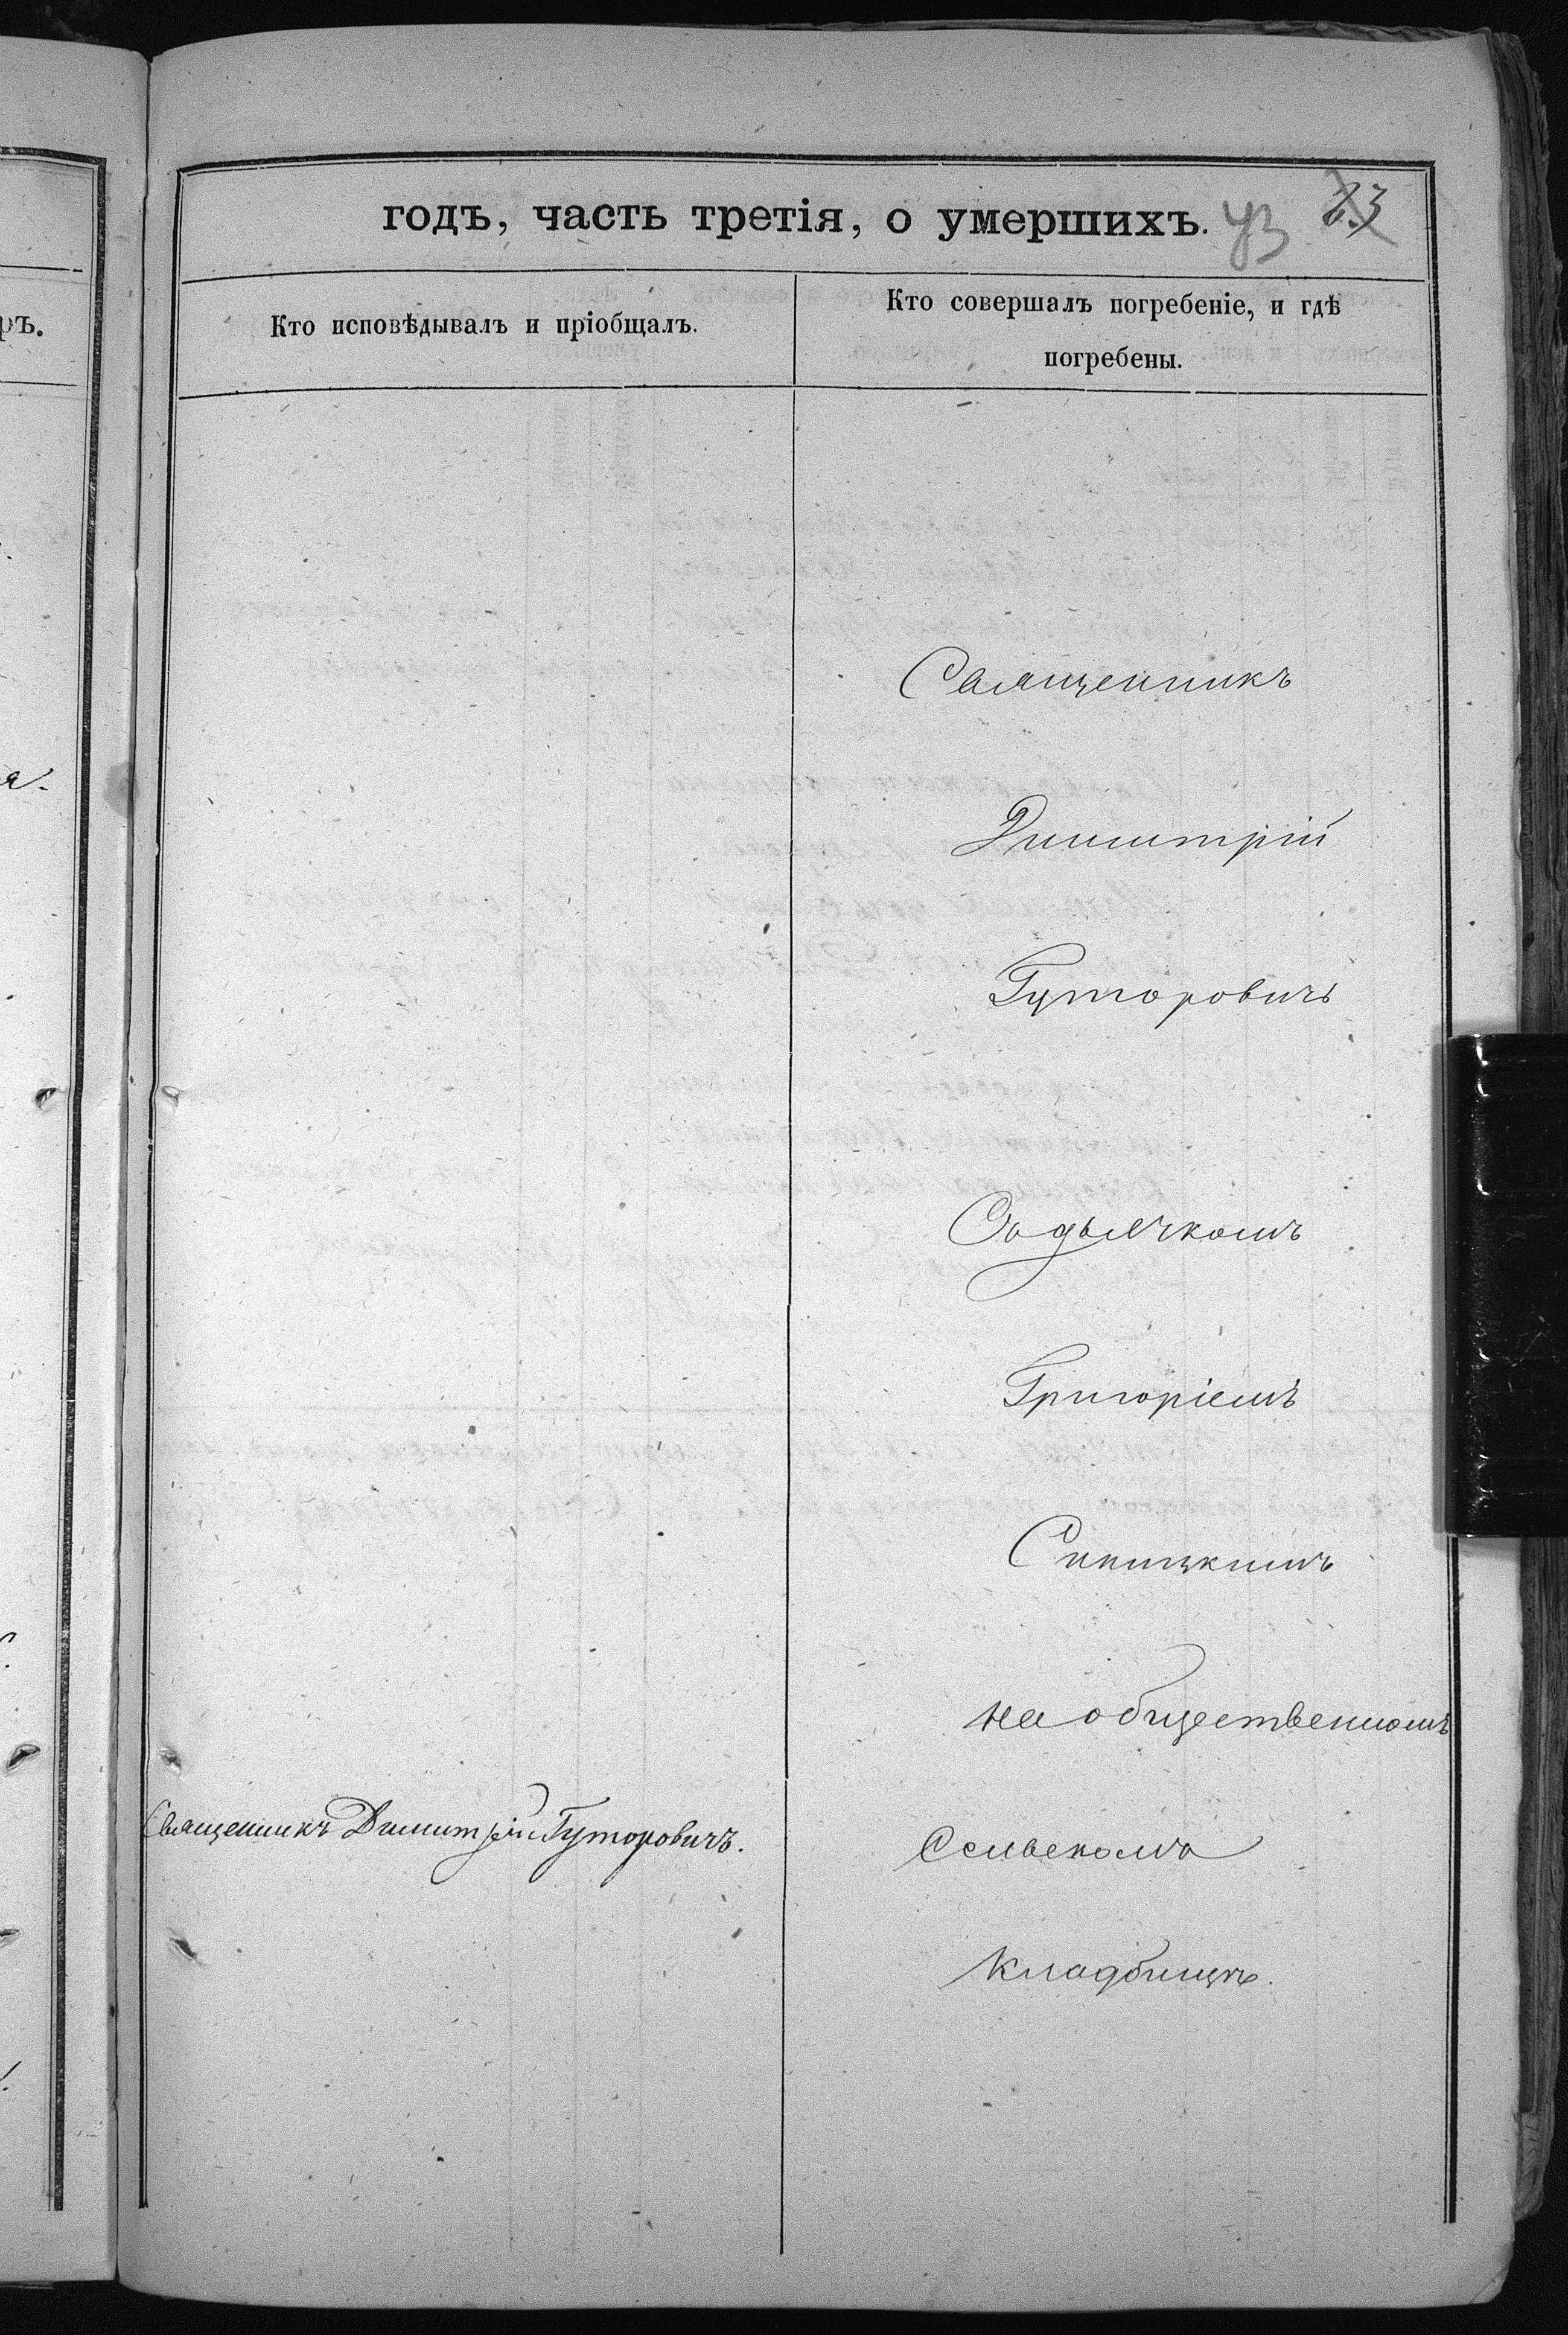 годъ, часть третія, о умершихъ. 43 23
Кто исповѣдывалъ и пріобщалъ.
Кто совершалъ погребеніе, и гдѣ
погребены.
Священникъ
Димитрій
Гуторовичъ
Съ дьячкомъ
Григоріемъ
Синицкимъ
на общественномъ
Священникъ Димитрій Гуторовичъ.
Сельскомъ
кладбищѣ.